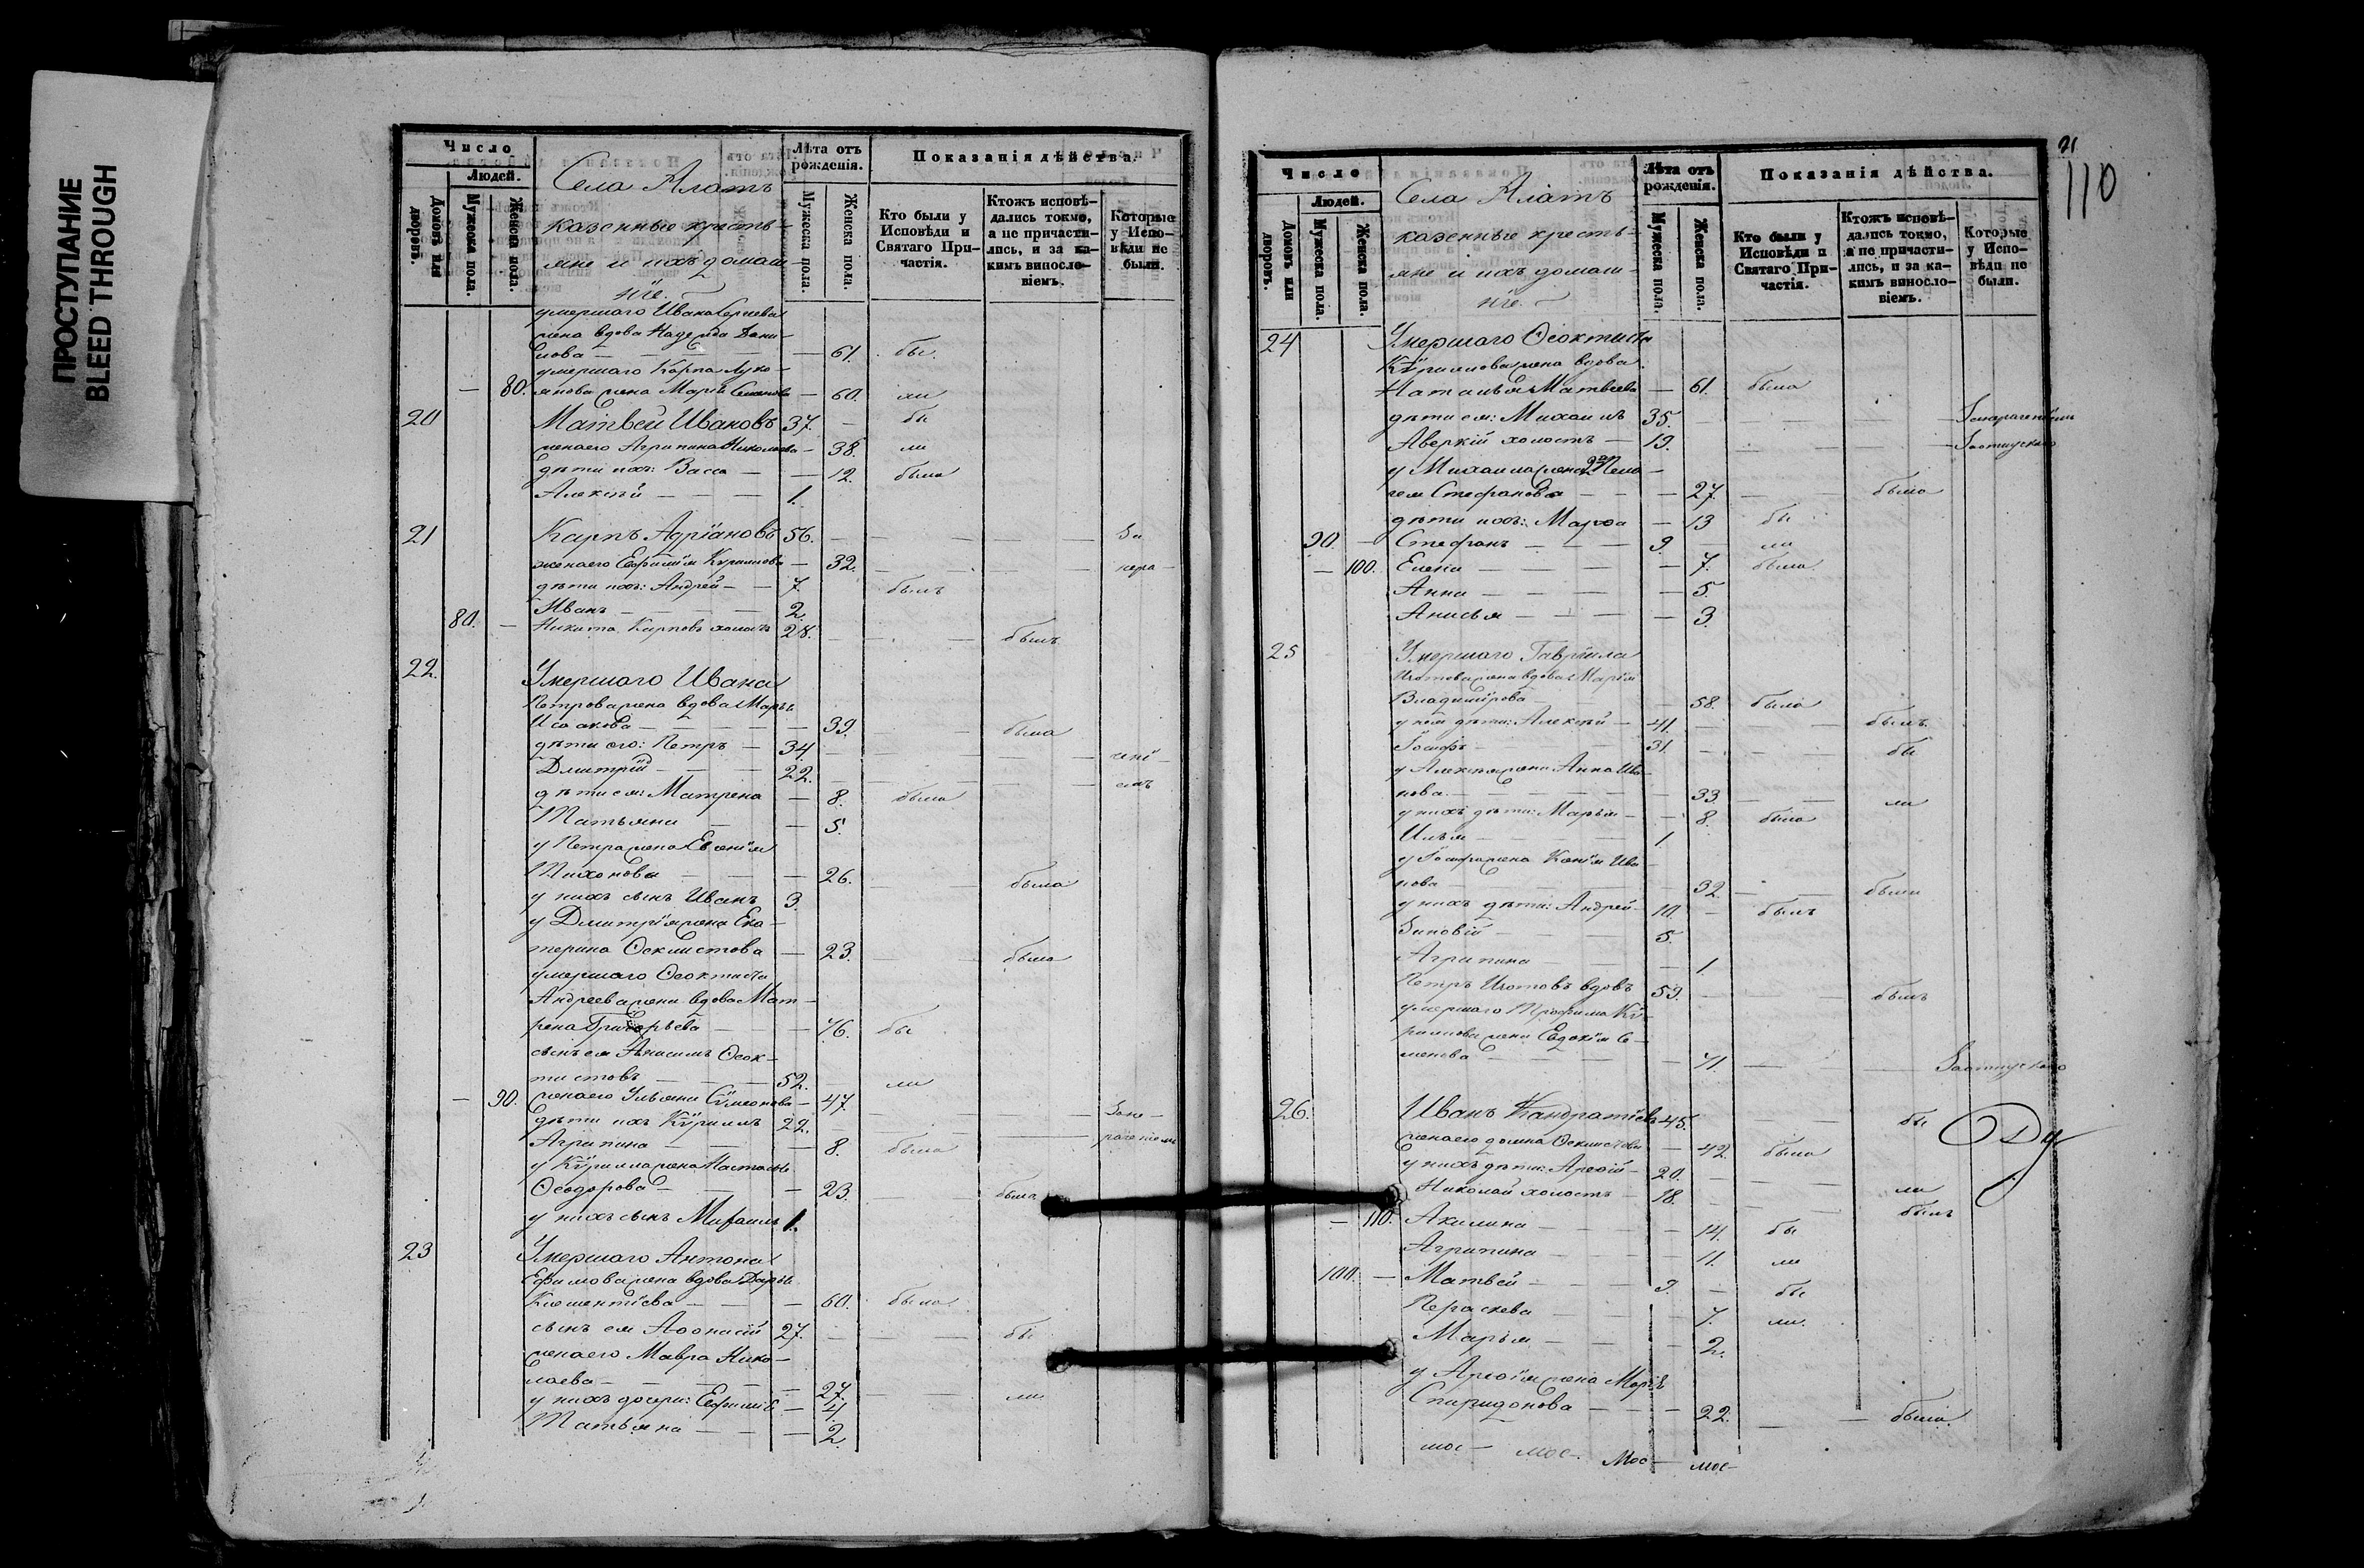 ПРОСТУПАНИЕ
BLEED THROUGH
Число
Людей.
Домовъ или дворовъ.
Мужеска пола.
Женска пола.
Села Алатъ
казенные кресть-
яне и ихъ домаш-
нiе.
Лѣта отъ рожденiя.
Мужеска пола.
Женска пола.
Показанiя дѣйства.
Кто были у Исповѣди и Святаго При-частiя.
Ктожъ исповѣ-дались токмо, а не причасти-лись, и за ка-кимъ винослo-вiемъ.
Которые у Испо-вѣди не были.
умершаго Ивана Сергеева
жена вдова Надежда Дани-
лова — 61. бы
умершаго Карпа Луко-
— 80. янова жена Марья — 60. ли
20 Матвей Ивановъ 37. — бы
жена его Агрипина Николаева — 38. ли
дѣти ихъ: Васса — 12. была
Алексѣй — 1.
21 Карпъ Адрiановъ 56. — За
жена его Евфимiя Кирилова — 32. — нера-
дѣти ихъ: Андрей — 7. былъ
Иванъ — 2.
80. — Никита Карповъ холостъ 28. — былъ
22. Умершаго Ивана
Петрова жена вдова Марья
Исаакова — 39. — была
дѣти его: Петръ — 34. —ченi-
Дмитрiй — 22. — емъ
дѣти ея: Матрена — 8. была
Татьяна — 5.
у Петра жена Евгенiя
Тихонова — 26. — была
у нихъ сынъ Иванъ 3.
у Дмитрiя жена Ека-
терина Феклистова — 23. — была
умершаго Феоктиста
Андреева жена вдова Мат-
рена Григорьева — 76. бы
сынъ ея Анисимъ Феок-
тистовъ — 52. — ли
— 90. жена его Ульяна Симеонова — 47. — Зане-
дѣти ихъ Кирилъ 22. — раченiемъ
Агрипина — 8. была
у Кирилла жена Настасья
Феодорова — 23. — была
у нихъ сынъ Михаилъ 1.
23 Умершаго Антона
Ефимова жена вдова Дарья
Клементiева — 60. была
сынъ ея Афонасiй 27. — бы
жена его Мавра Нико-
лаева — 27. — ли
у нихъ дочери: Евфимiя — 4.
Татьяна — 2.
21
110
Число
Людей.
Домовъ или дворовъ.
Мужеска пола.
Женска пола.
Села Алатъ
казенные кресть-
яне и ихъ домаш-
нiе.
Лѣта отъ рожденiя.
Мужеска пола.
Женска пола.
Показанiя дѣйства.
Кто были у Исповѣди и Святаго При-частiя.
Ктожъ исповѣ-дались токмо, а не причасти-лись, и за ка-кимъ винослo-вiемъ.
Которые у Испо-вѣди не были.
24 Умершаго Феоктиста
Кирилова жена вдова
Наталья Матвеева — 61. была
дѣти ея: Михаилъ 35. — Занераченiемъ
Аверкiй холостъ — 19. — Заотлучкою
у Михаила жена Пела-
гея Стефанова — 27. — была
дѣти ихъ: Марфа — 13 бы
90. — Стефанъ — 9. — ли
— 100. Елена — 7. была
Анна — 5.
Анисья — 3.
25 Умершаго Гаврiила
Изотова жена вдова Марiя
Владимiрова — 58. была
у нея дѣти: Алексѣй — 41. — былъ
Iосифъ — 31. — бы
у Алексѣя жена Анна Ива-
нова — 33. — ли
у нихъ дѣти: Марья — 8. была
Илья — 1
у Iосифа жена Ксенiя Ива-
нова — 32. — была
у нихъ дѣти: Андрей — 10. — былъ
Зиновiй — 5.
Агрипина — 1.
Петръ Изотовъ вдовъ 59. — былъ
умершаго Трофима Ки-
рилова жена Евдокiя Се-
менова — 71. — Заотлучкою
26. Иванъ Кандратiевъ 45. — бы
жена его Домна Феклистова — 42. была
у нихъ дѣти: Арефiй — 20. — ли
Николай холостъ — 18. — былъ
— 110. Акилина — 14. бы
Агрипина — 11. ли
100. — Матвей — 9. — бы
Параскева — 7. ли.
Марья — 2.
у Арефiя жена Марiя
Спиридонова — 22. — была